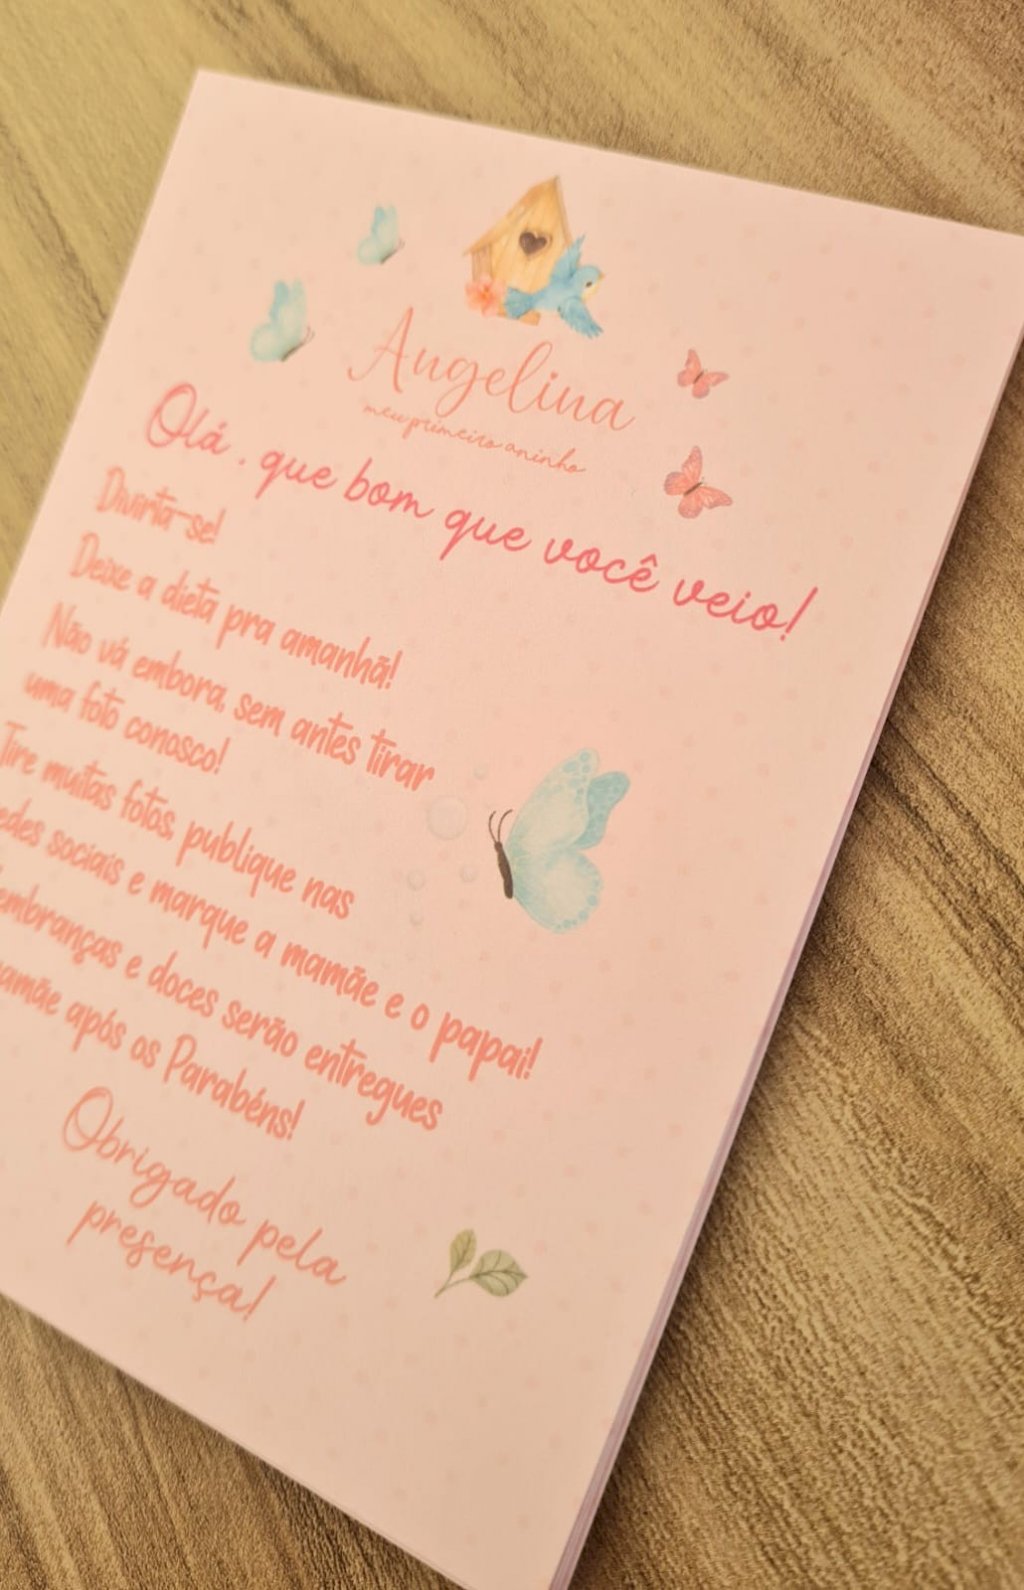 Angelina
meu primeiro aninho
Olá . que bom que você veio!
Divirta-se!
Deixe a dieta pra amanhã!
Não vá embora, sem antes tirar
uma foto conosco!
Tire muitas fotos, publique nas
edes sociais e marque a mamãe e o papai!
embranças e doces serão entregues
amãe após os Parabéns!
Obrigado pela
presença!